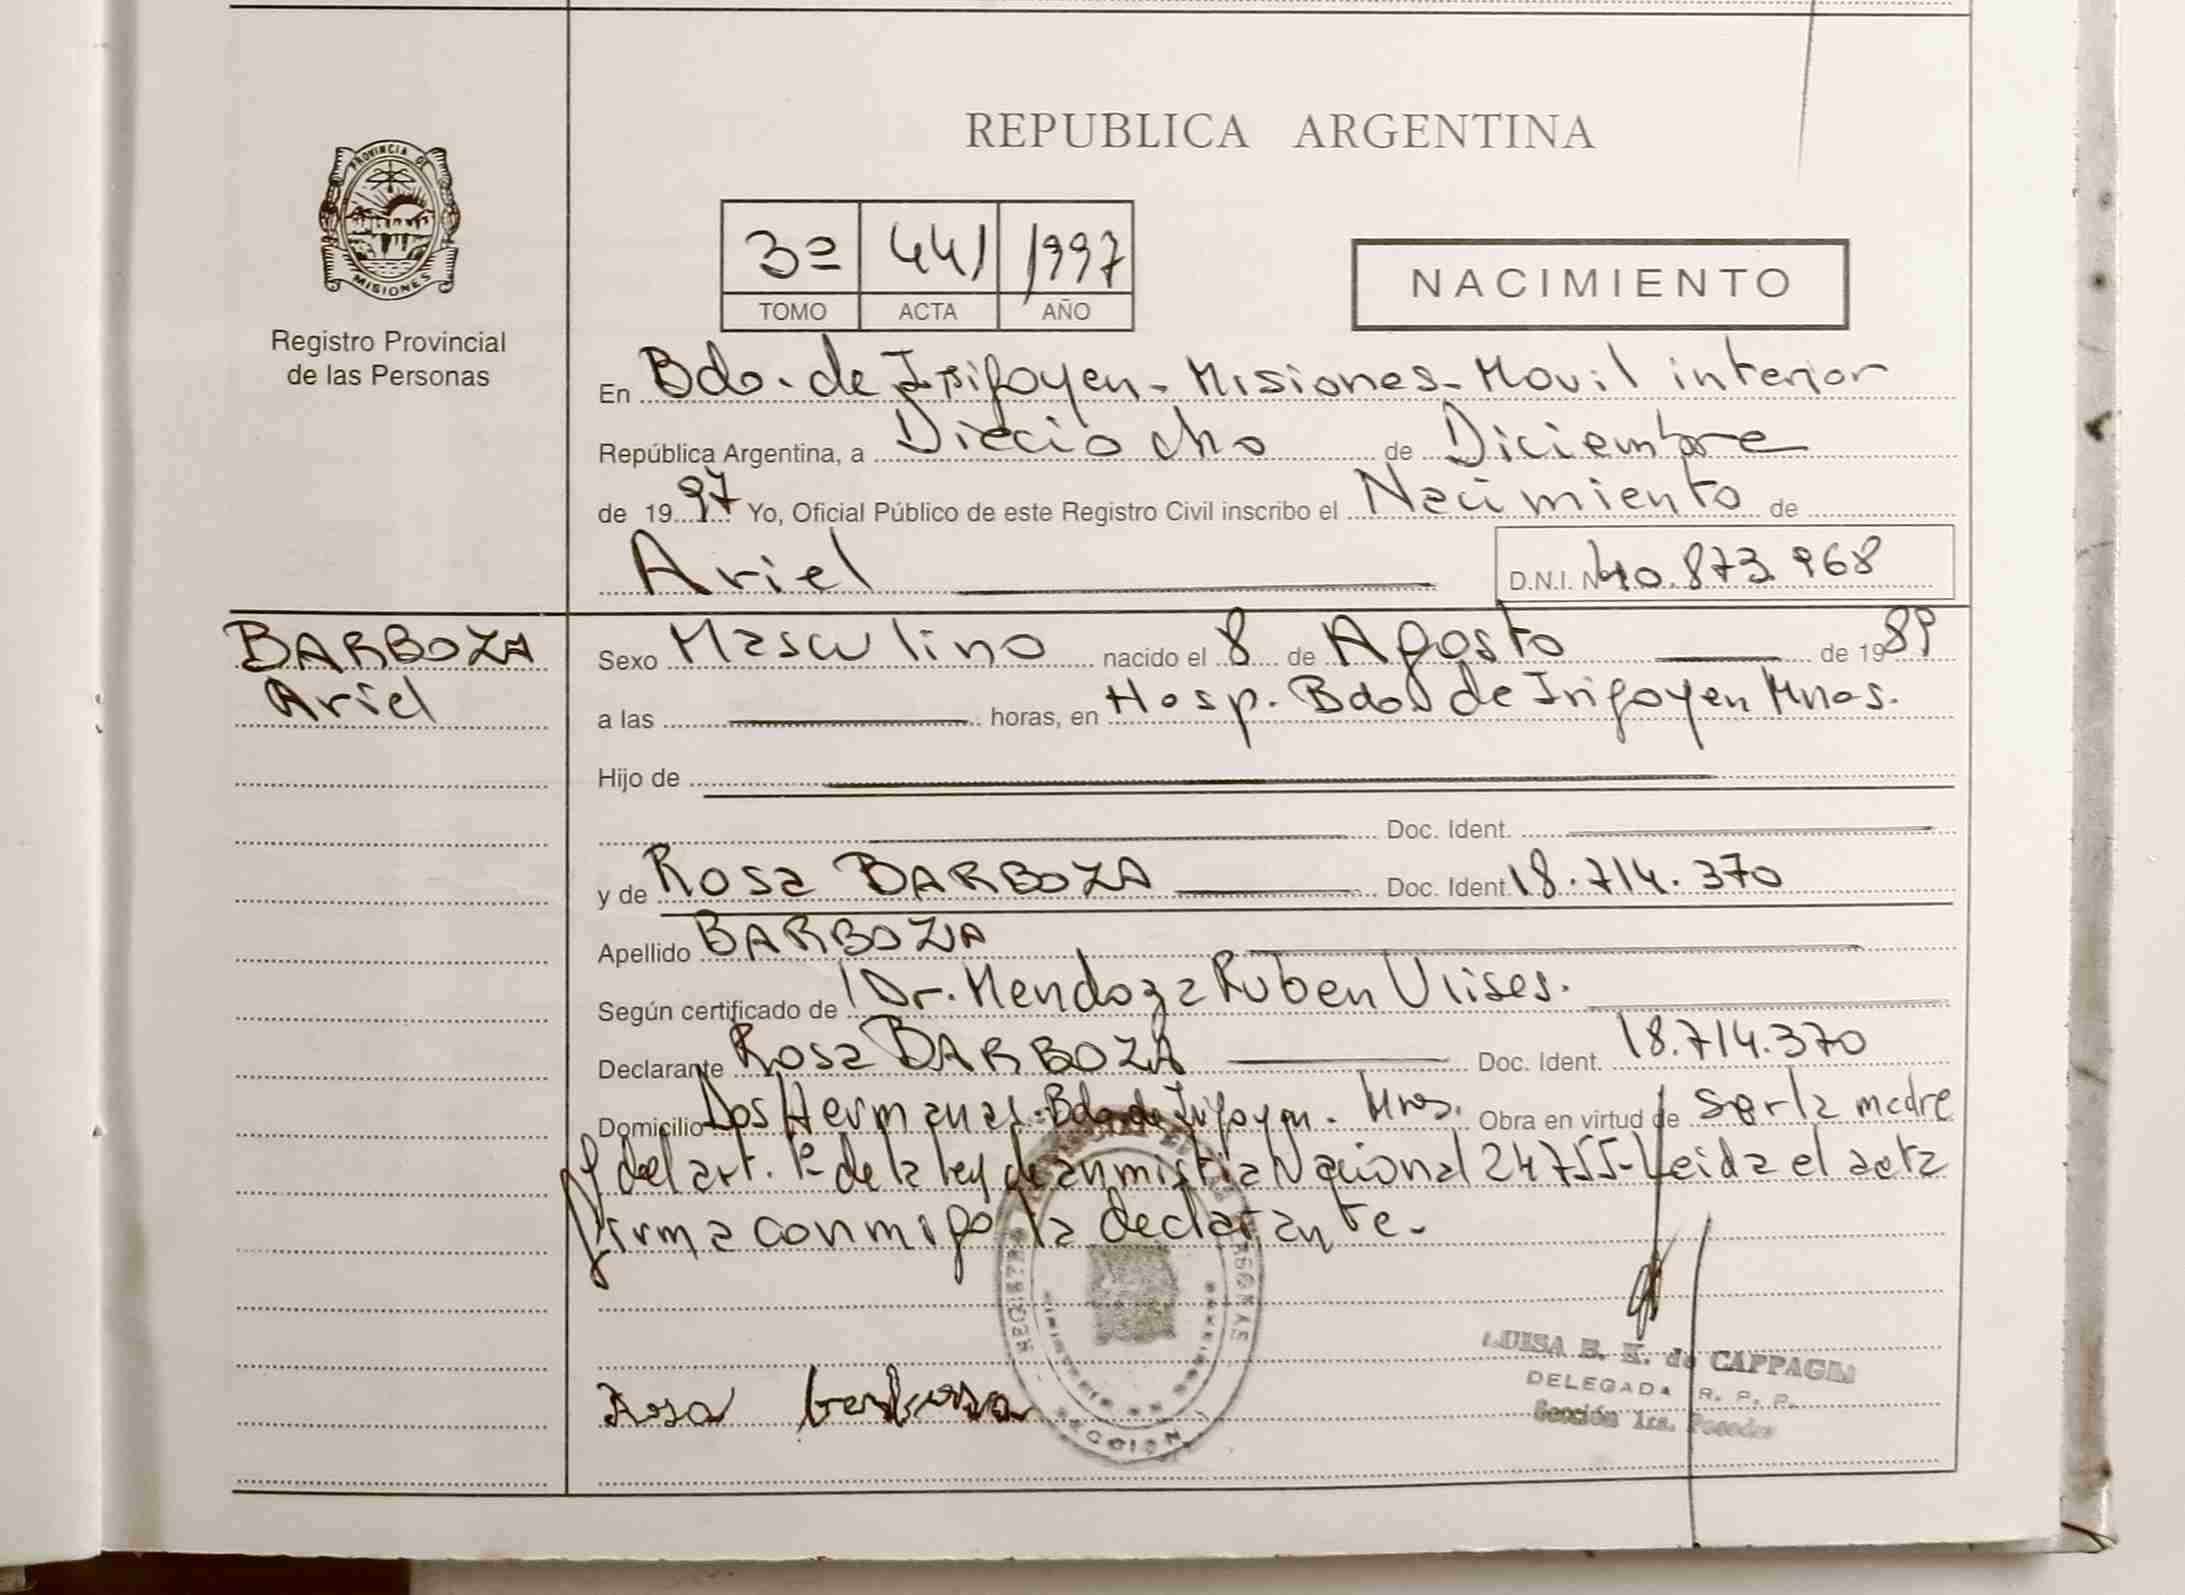 REPUBLICA ARGENTINA
PROVINCIA DE
MISIONES
Registro Provincial
de las Personas
3º 441 1997
TOMO ACTA AÑO
NACIMIENTO
En Bdo. de Irigoyen - Misiones - Movil interior
República Argentina, a Dieciocho de Diciembre
de 1997 Yo, Oficial Público de este Registro Civil inscribo el Nacimiento de
Ariel D.N.I. Nº 40.873.968
BARBOZA
Ariel
Sexo Masculino nacido el 8 de Agosto de 1989
a las horas, en Hosp. Bdo. de Irigoyen Mnes.
Hijo de
Doc. Ident.
y de Rosa BARBOZA Doc. Ident. 18.714.370
Apellido BARBOZA
Según certificado de Dr. Mendoza Ruben Ulises.
Declarante Rosa BARBOZA Doc. Ident. 18.714.370
Domicilio Dos Hermanas - Bdo. de Irigoyen. Mnes. Obra en virtud de ser la madre
y del art. 1º de la ley de anmistia Nacional 24755 - Leida el acta
firma conmigo la declarante.
LUISA B. K. de CAPPAGLI
DELEGADA R. P. P.
Sección 1ra. Posadas
Rosa Barboza
SECCION